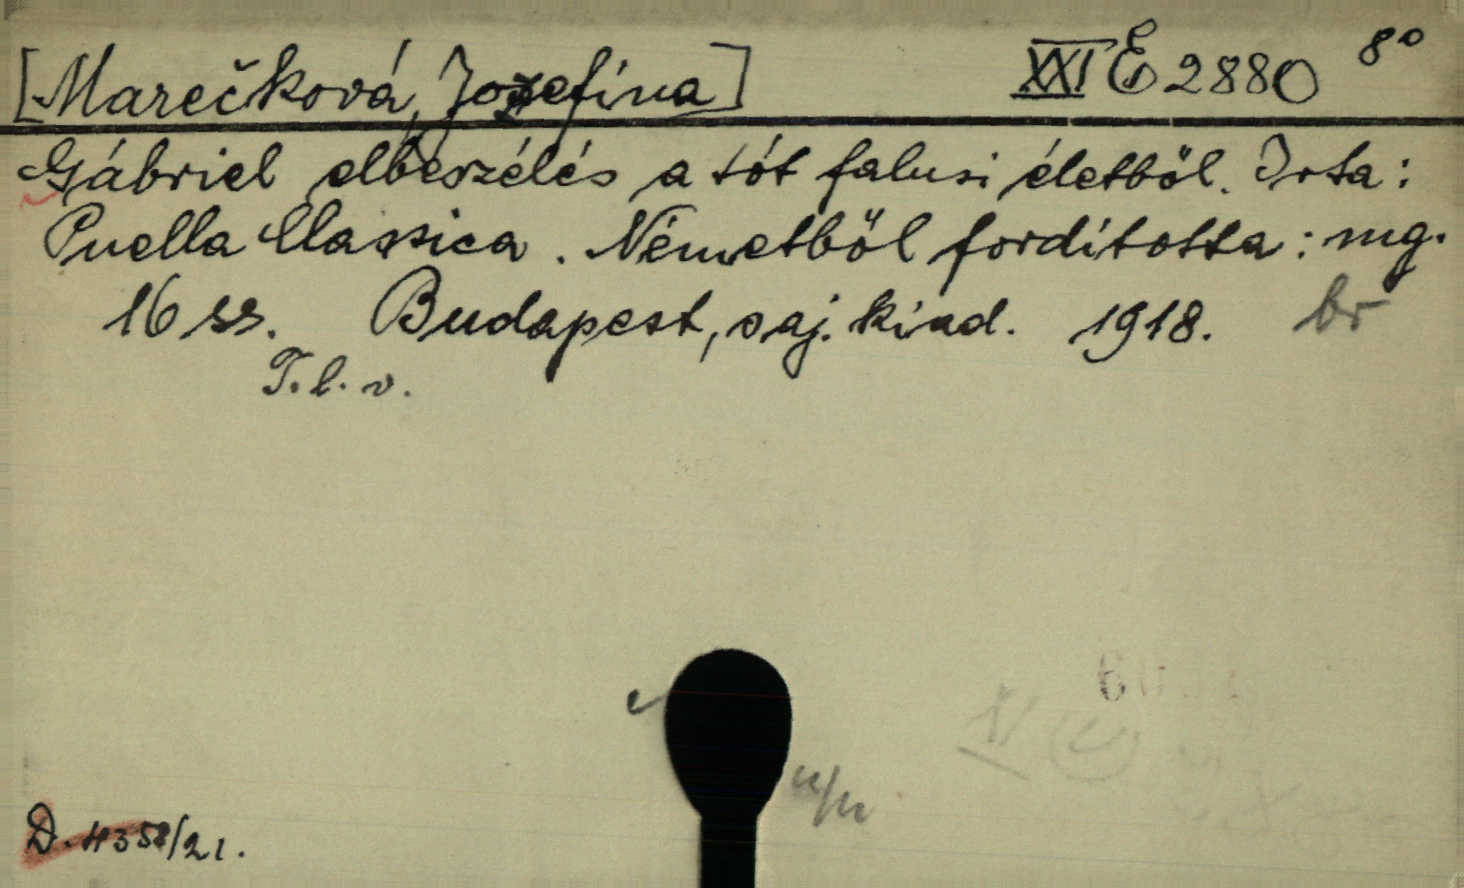 [Marečková, Jozefina] XXI E 2880 8°
Gábriel elbeszélés a tót falusi életböl. Irta:
Puella Classica. Németböl forditotta: mg.
16 ss. Budapest, saj. kiad. 1918. br
T. l. v.
D. 4358/21.